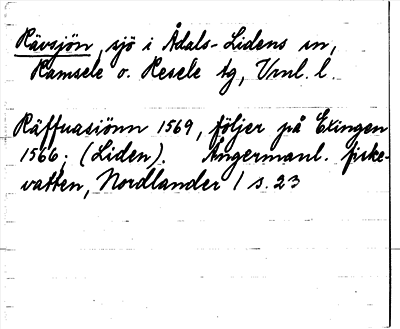 Rävsjön, sjö i Ådals-Lidens sn,
Ramsele o. Resele tg, Vnl. l.
Räffuasiönn 1569, följer på Exingen
1566; (Liden). Ångermanl. fiske-
vatten, Nordlander 1 s. 23